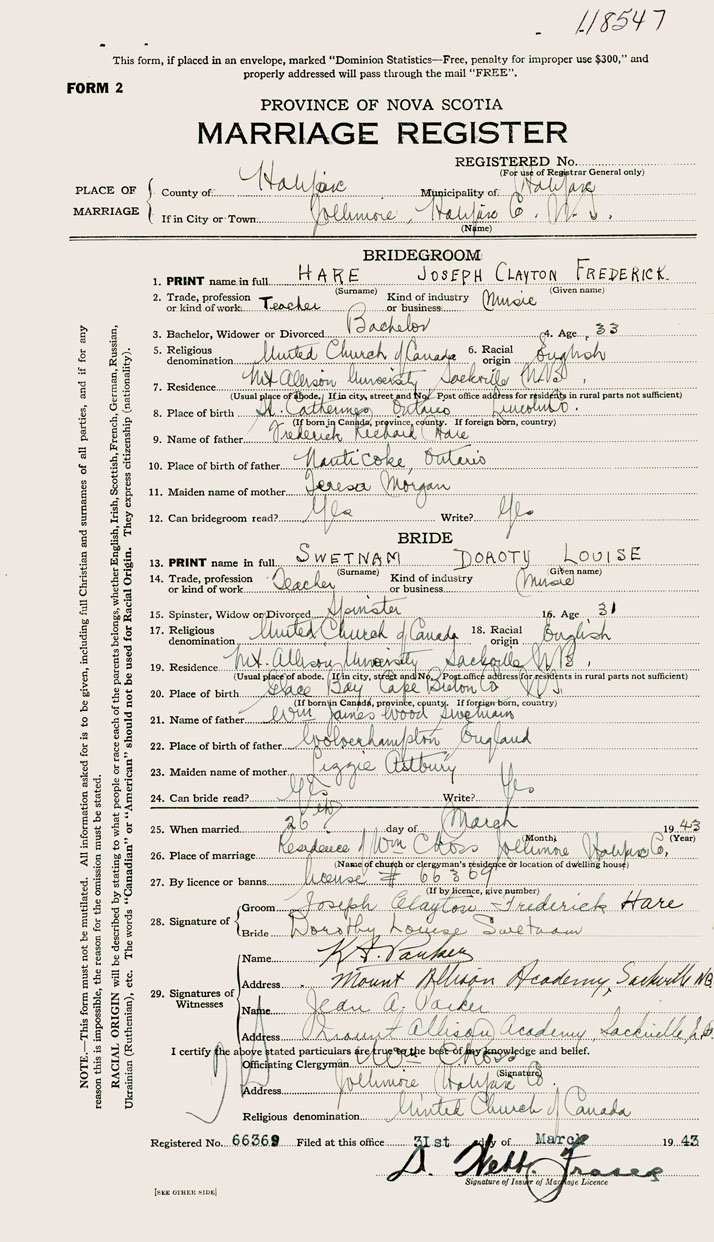 118547
This form, if placed in an envelope, marked "Dominion Statistics—Free, penalty for improper use $300," and
properly addressed will pass through the mail "FREE".
FORM 2
PROVINCE OF NOVA SCOTIA
MARRIAGE REGISTER
REGISTERED No.
(For use of Registrar General only)
PLACE OF MARRIAGE
County of Halifax Municipality of Halifax
If in City or Town Jollimore, Halifax Co. N.S.
(Name)
BRIDEGROOM
1. PRINT name in full HARE JOSEPH CLAYTON FREDERICK
(Surname) (Given name)
2. Trade, profession or kind of work Teacher Kind of industry or business Music
3. Bachelor, Widower or Divorced Bachelor 4. Age 33
5. Religious denomination United Church of Canada 6. Racial origin English
7. Residence Mt Allison University Sackville N.B.
(Usual place of abode. If in city, street and No. Post office address for residents in rural parts not sufficient)
8. Place of birth St. Catherines Ontario Lincoln Co.
(If born in Canada, province, county. If foreign born, country)
9. Name of father Frederick Richard Hare
10. Place of birth of father Nanticoke, Ontario
11. Maiden name of mother Teresa Morgan
12. Can bridegroom read? Yes Write? Yes
BRIDE
13. PRINT name in full SWETNAM DOROTY LOUISE
(Surname) (Given name)
14. Trade, profession or kind of work Teacher Kind of industry or business Music
15. Spinster, Widow or Divorced Spinster 16. Age 31
17. Religious denomination United Church of Canada 18. Racial origin English
19. Residence Mt. Allison University Sackville N.B.
(Usual place of abode. If in city, street and No. Post office address for residents in rural parts not sufficient)
20. Place of birth Glace Bay Cape Breton Co N.S.
(If born in Canada, province, county. If foreign born, country)
21. Name of father Wm James Wood Swetnam
22. Place of birth of father Wolverhampton England
23. Maiden name of mother Lizzie Astbury
24. Can bride read? Yes Write? Yes
25. When married 26th day of March 1943
(Month) (Year)
26. Place of marriage Residence of Wm Cross Jollimore Halifax Co.
(Name of church or clergyman's residence or location of dwelling house)
27. By licence or banns license # 66369
(If by licence, give number)
28. Signature of
Groom Joseph Clayton Frederick Hare
Bride Dorothy Louise Swetnam
29. Signatures of Witnesses
Name K. A. Parker
Address Mount Allison Academy, Sackville NB
Name Jean A. Parker
Address Mount Allison Academy, Sackville N.B.
I certify the above stated particulars are true to the best of my knowledge and belief.
Officiating Clergyman Wm Cross
(Signature)
Address Jollimore Halifax Co
Religious denomination United Church of Canada
Registered No. 66369 Filed at this office 31st day of March 1943
Signature of Issuer of Marriage Licence
[SEE OTHER SIDE]
NOTE.—This form must not be mutilated. All information asked for is to be given, including full Christian and surnames of all parties, and if for any
reason this is impossible, the reason for the omission must be stated.
RACIAL ORIGIN will be described by stating to what people or race each of the parents belongs, whether English, Irish, Scottish, French, German, Russian,
Ukrainian (Ruthenian), etc. The words "Canadian" or "American" should not be used for Racial Origin. They express citizenship (nationality).